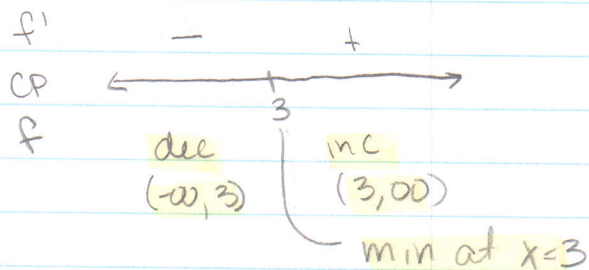 f' − +
CP
3
f dec inc
(-∞, 3) (3, ∞)
min at x=3